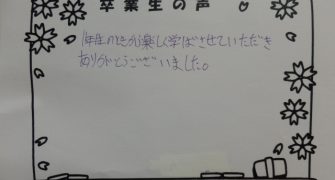 卒業生の声
1年生のときから楽しく学ばさせていただき
ありがとうございました。